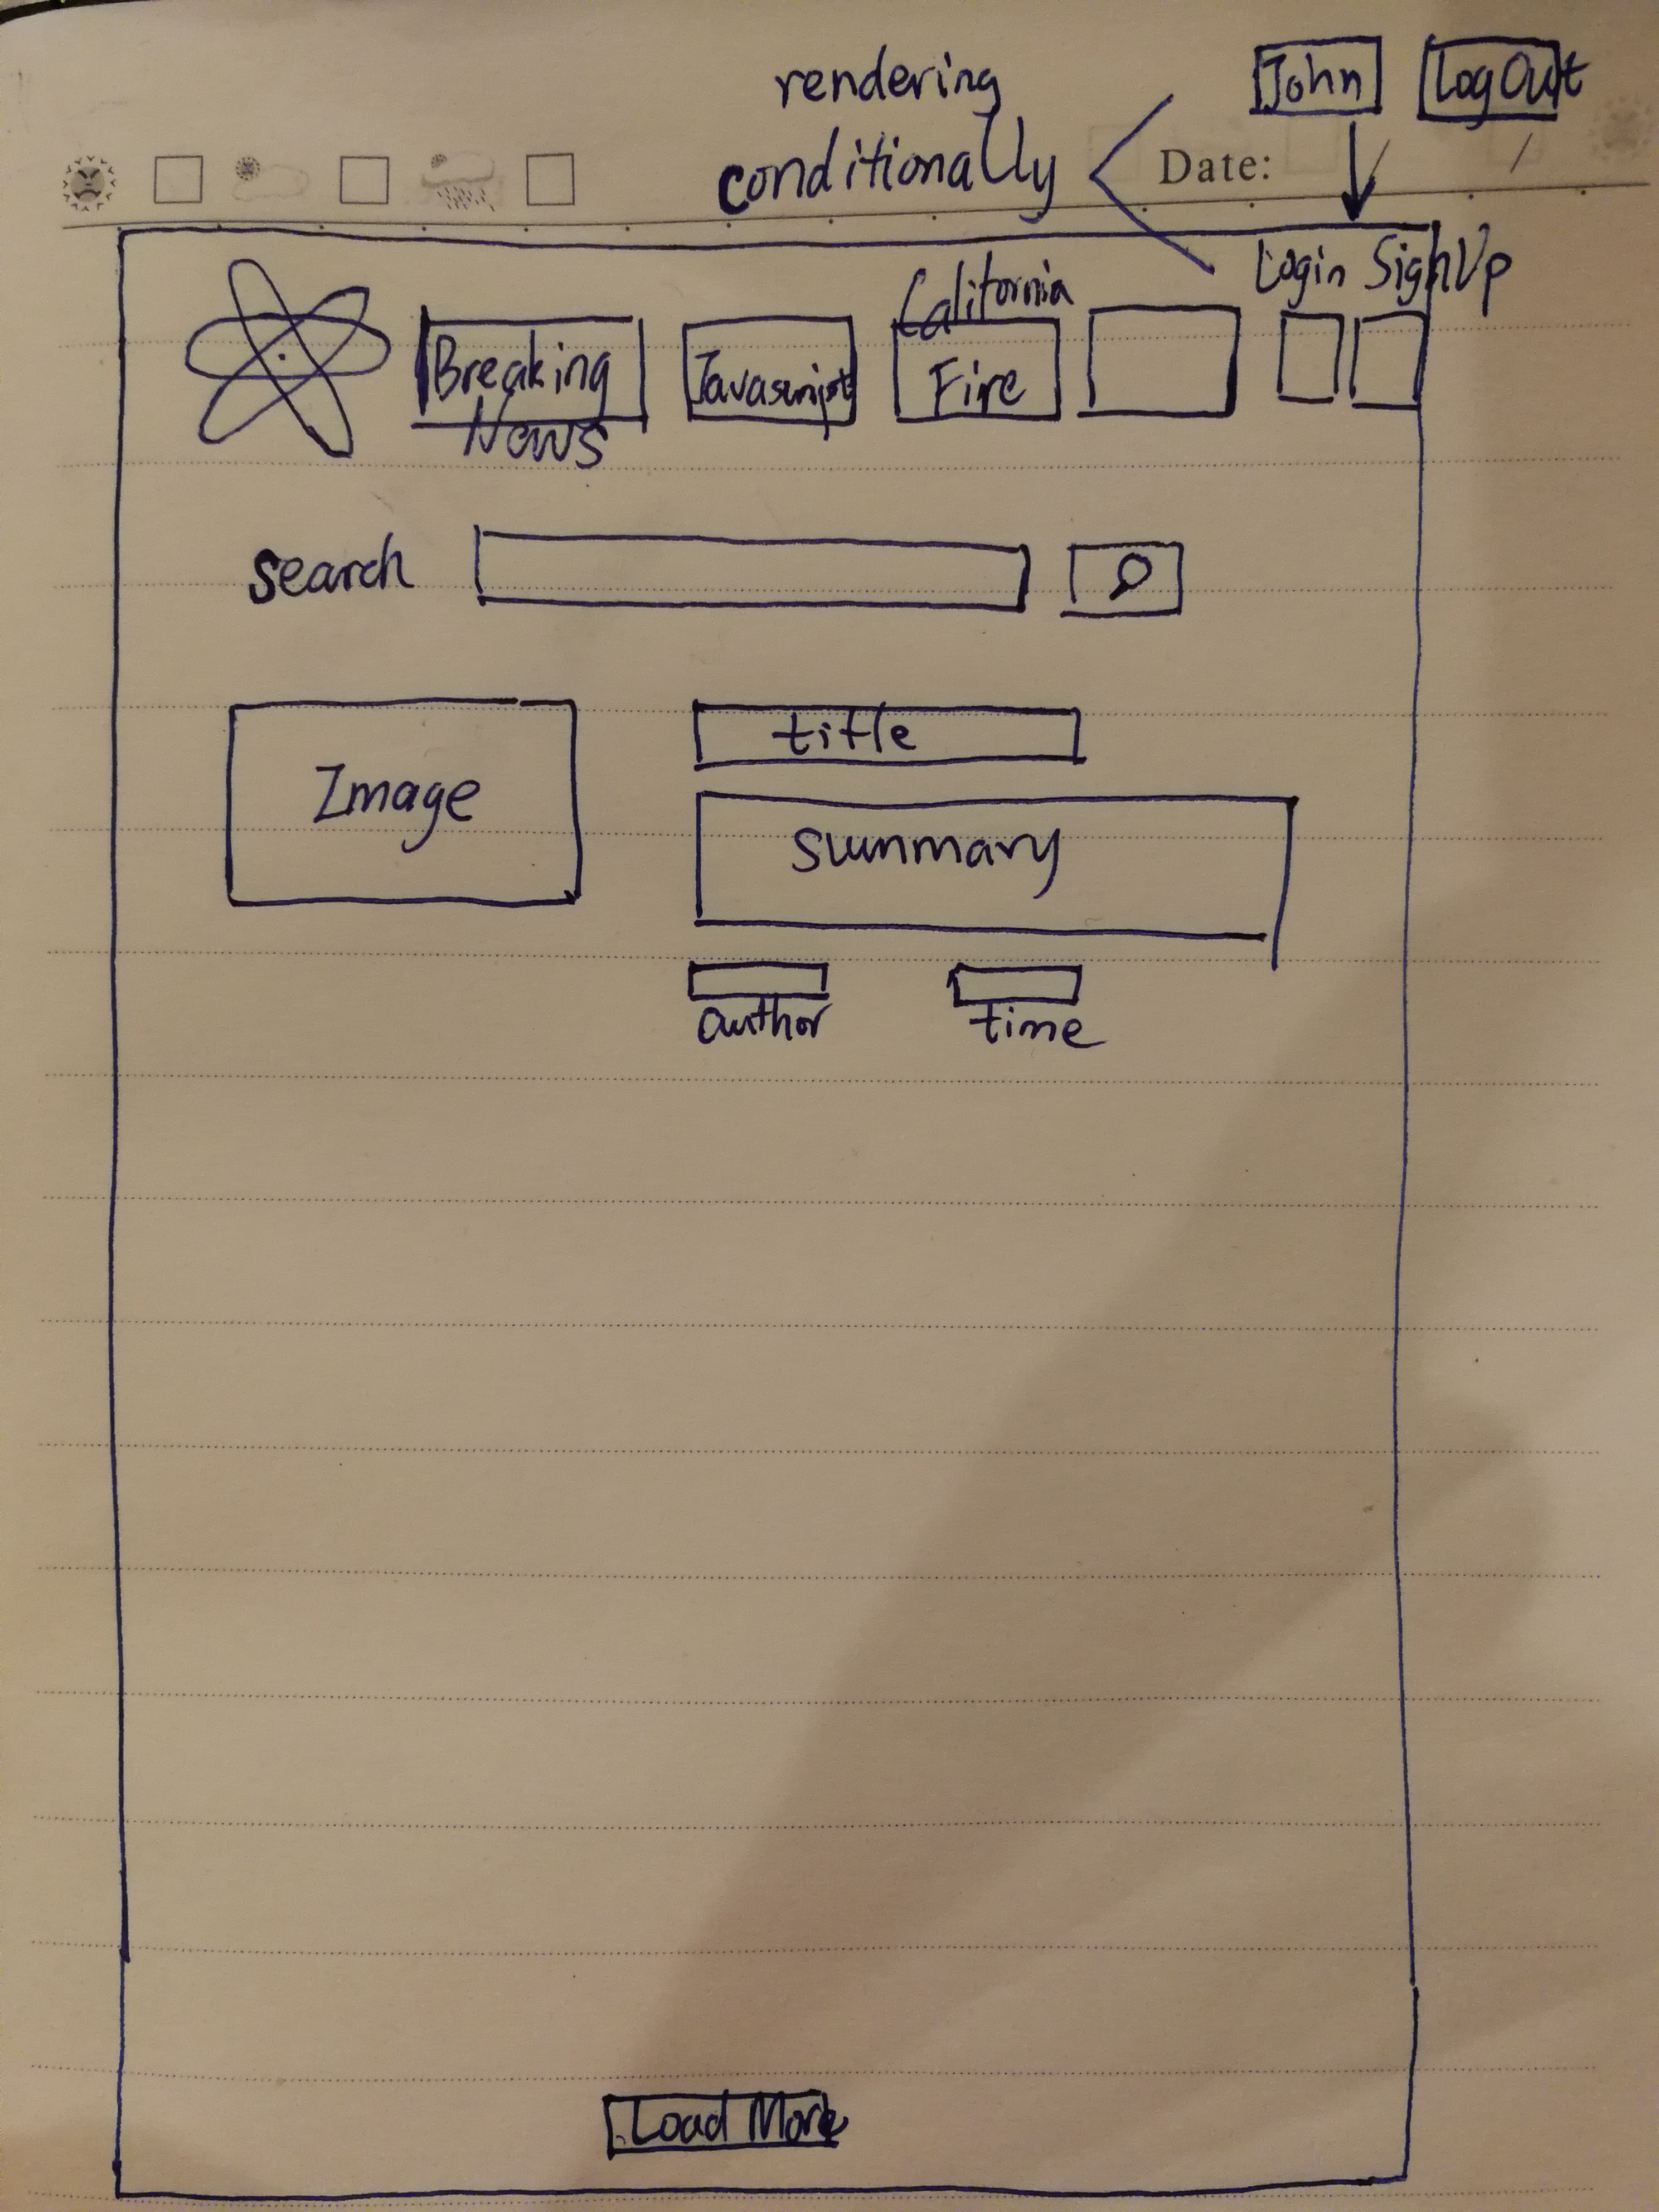 rendering
John LogOut
conditionally
Date:
Login SignUp
Breaking
News
Javascript
California
Fire
search
Image
title
summary
author time
Load More